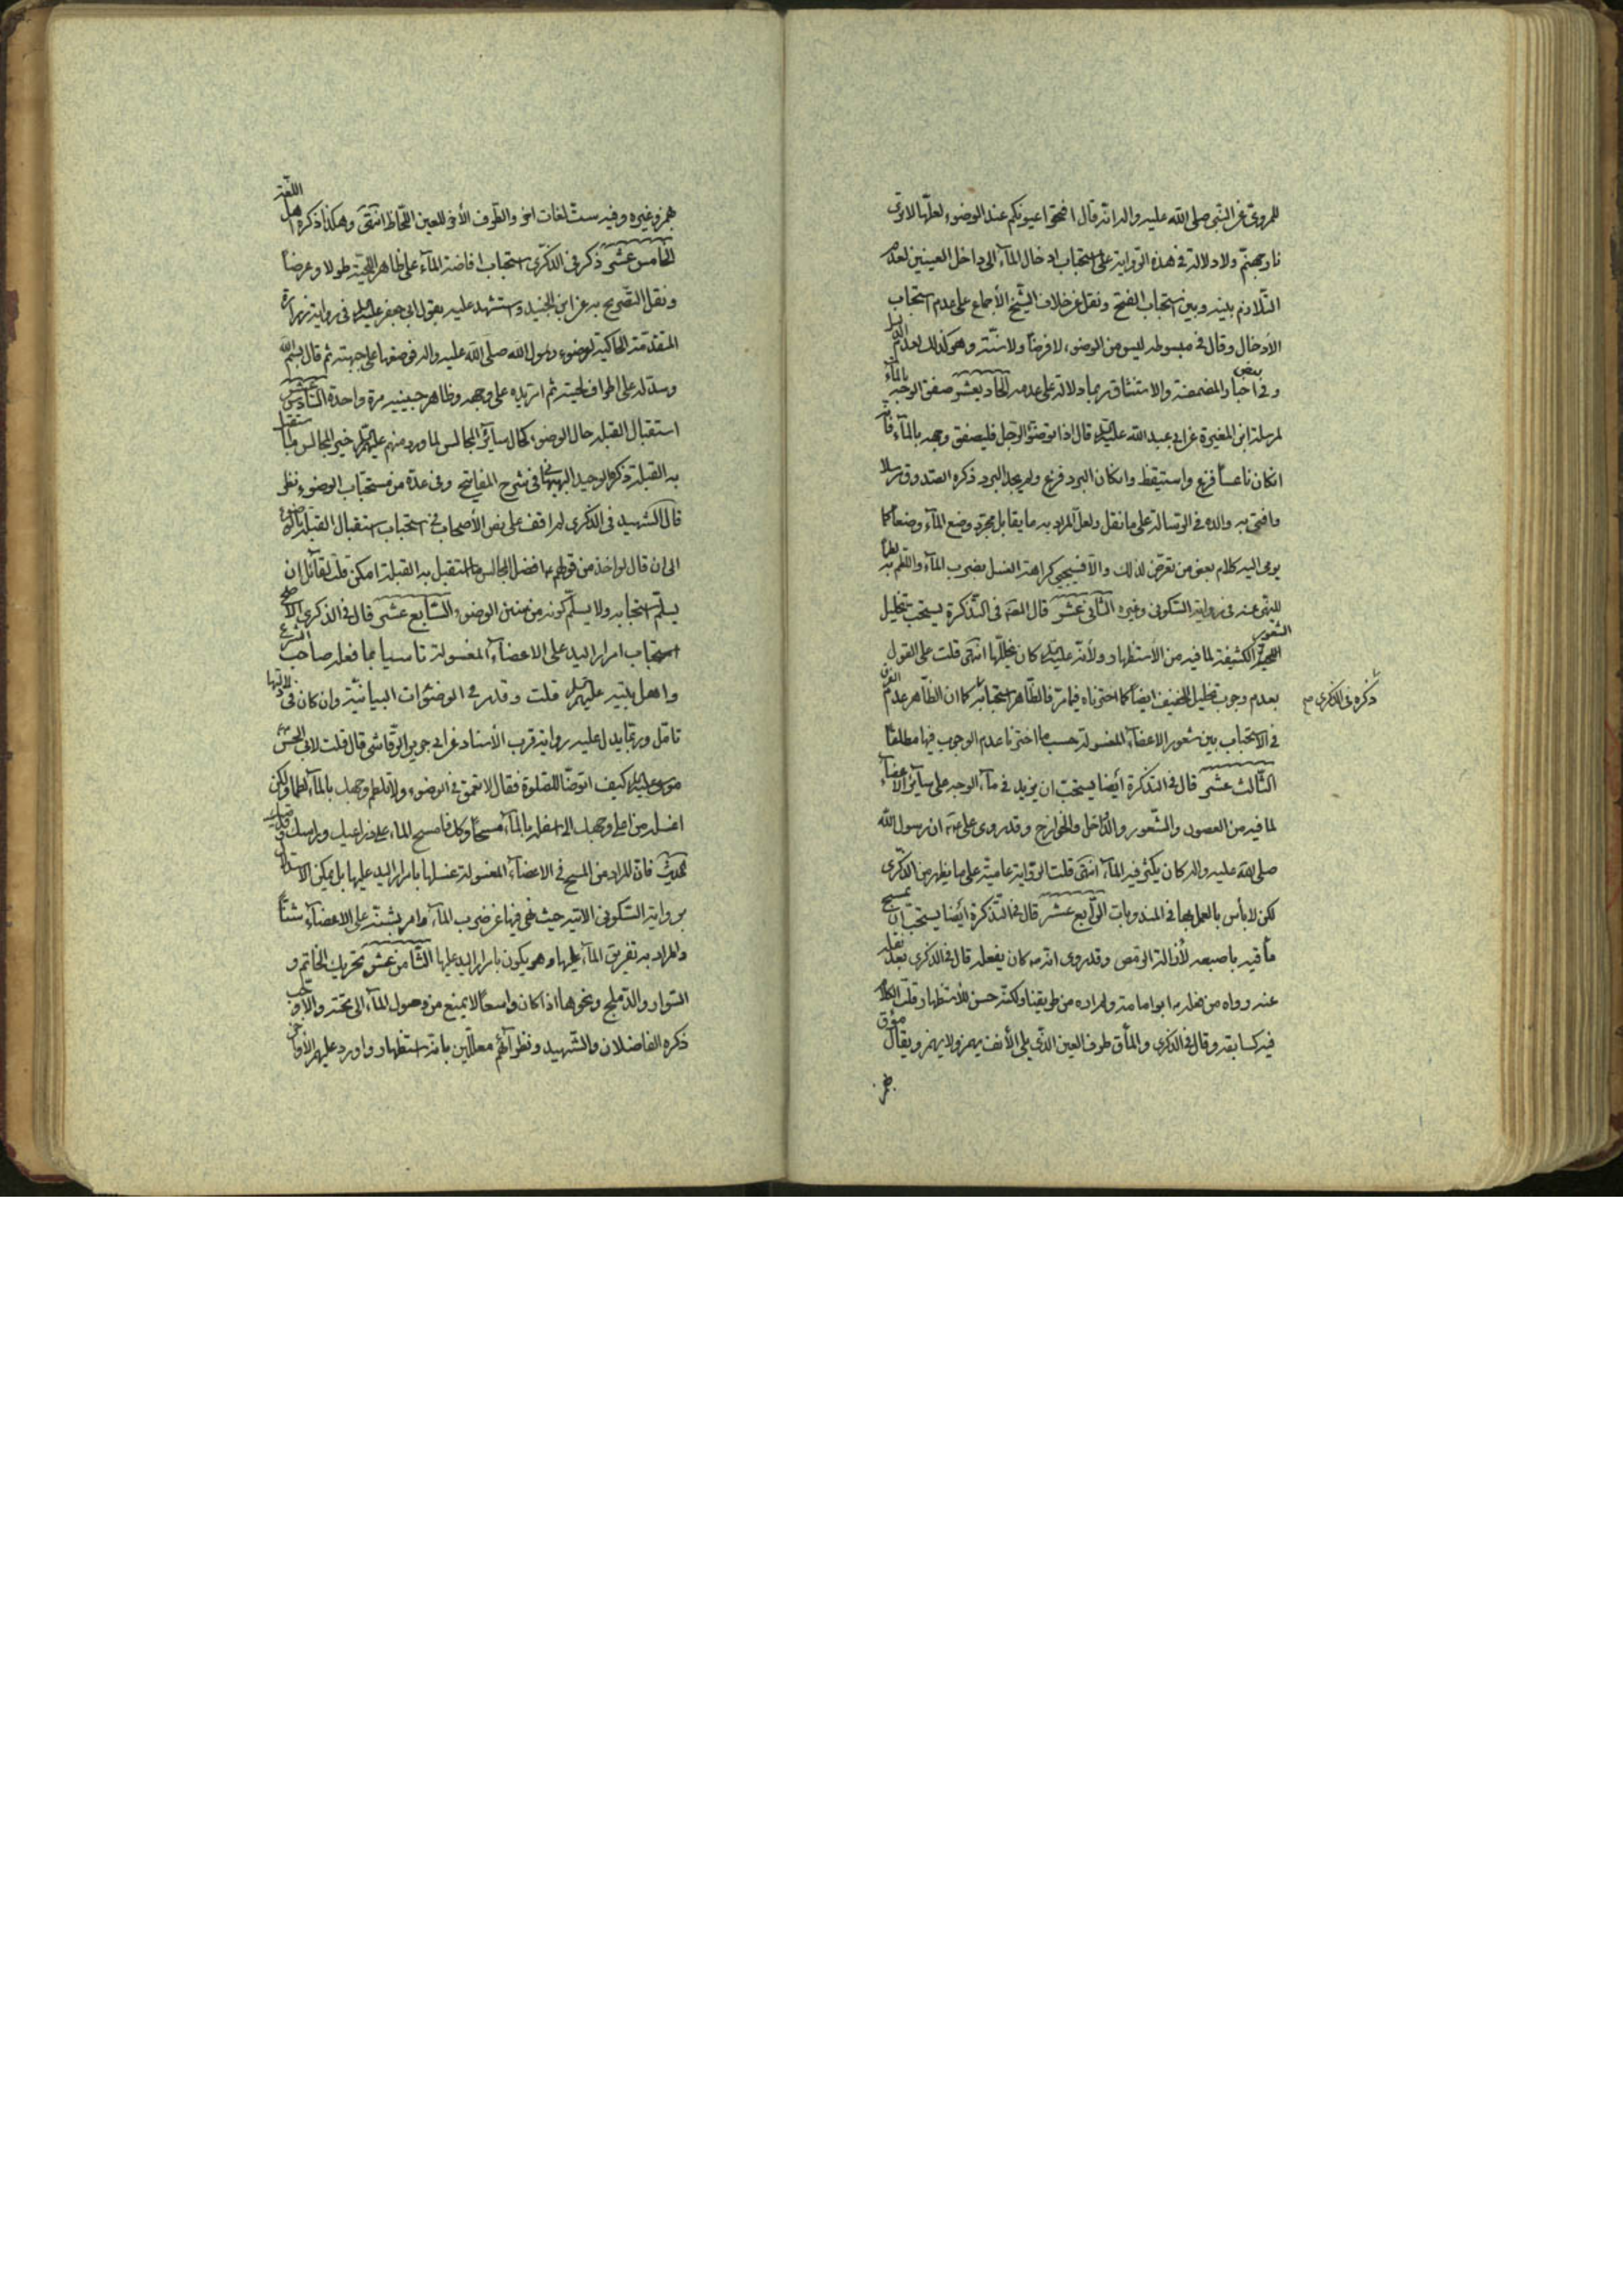 للمروي عن النبي صلى الله عليه واله انه قال افتحوا عيونكم عند الوضوء لعلها لا ترى
نار جهنم ولا دلالة في هذه الرواية على استحباب ادخال المآء الى داخل العينين لعدم
التلازم بينه وبين استحباب الفتح ونقل عن خلاف الشيخ الأجماع على عدم استحباب
الأدخال وقال في مبسوطه ليس من الوضوء لا فرضاً ولا سنة وهو كذلك لعدم الدليل
وفي بعض اخبار المضمضة والاستنشاق ربما دلالة على عدمه الحاديعشر صفق الوجه بالمآء
لمرسلة ابن المغيرة عن ابي عبد الله عليه السلام قال اذا توضؤ الرجل فليصفق وجهه بالمآء فانه
ان كان ناعساً فزع واستيقظ وان كان البرد فزع ولم يجد البرد ذكره الصدوق مرسلا
وافتى به والده في الرسالة على ما نقل ولعل المراد به ما يقابل مجرد وضع المآء وضعاً كما
يومى اليه كلام بعض من تعرض لذلك والا فسيجيئ كراهة الغسل بضرب المآء واللطم به لطماً
للنهى عنه في رواية السكوني وغيره الثاني عشر قال المصه في التذكرة يستحب تخليل
الشعور اللحية الكثيفة لما فيه من الأستظهار ولأنه عليه السلام كان يخللها انتهى قلت على القول
بعدم وجوب تخليل الخفيف ايضاً كما اخترناه فيما مر فالظاهر استحبابه كما ان الظاهر عدم الفرق
ذكره في الذكرى صح
في الاستحباب بين شعور الاعضآء المغسولة حسب ما اخترنا عدم الوجوب فيها مطلقاً
الثالث عشر قال في التذكرة أيضا يستحب ان يزيد في مآء الوجه على سآئر الأعضآء
لما فيه من الغصون والشعور والداخل والخوارج وقد روى على عه ان رسول الله
صلى الله عليه واله كان يكثر فيه المآء انتهى قلت الرواية عامية على ما يظهر من الذكرى
لكن لا بأس بالعمل بها في المندوبات الرابع عشر قال في التذكرة أيضا يستحب ان يمسح
مأقيه باصبعه لأزالة الرمص وقد روى انه ص كان يفعله قال في الذكرى بعد نقله
عنه رواه من فعله ص ابو امامة ولم اره من طريقنا ولكنه حسن للأستظهار قلت الكلام
فيه كسابقه وقال في الذكرى والمأق طرف العين الذي يلى الأنف يهمز ولا يهمز ويقال مؤق
همز وغيره وفيه ست لغات اخر والطرف الأخر للعين اللحاظ انتهى وهكذا ذكره اهل اللغة
الخامس عشر ذكر في الذكرى استحباب افاضة المآء على ظاهر اللحية طولا وعرضاً
ونقل التصريح به عن ابن الجنيد واستشهد عليه بقول ابي جعفر عليه السلام في رواية زرارة
المتقدمة الحاكية لوضوء رسول الله صلى الله عليه واله فوضعها على جبهته ثم قال بسم الله
وسدله على اطراف لحيته ثم امر يده على وجهه وظاهر جبينيه مرة واحدة السادس عشر
استقبال القبلة حال الوضوء كحال سآئر المجالس لما ورد منهم عليهم السلام خير المجالس ما استقبل
به القبلة ذكره الوحيد البهبهاني في شرح المفاتيح وفي عدة من مستحبات الوضوء نظر
قال الشهيد في الذكرى لم اقف على نص الأصحاب في استحباب استقبال القبلة بالوضوء
الى ان قال لو اخذ من قولهم ع افضل المجالس ما استقبل به القبلة امكن قلت لقآئل ان
يسلم استحبابه ولا يسلم كونه من سنن الوضوء السابع عشر قال في الذكرى الأصح
استحباب امرار اليد على الاعضآء المغسولة تاسيا بما فعله صاحب الشرع
واهل بيته عليهم السلام قلت وقد مر في الوضوئات البيانية وان كان في دلالتها
تامل وربما يدل عليه رواية قرب الأسناد عن ابي جرير الرقاشي قال قلت لابي الحسن
موسى عليه السلام كيف اتوضا للصلوة فقال لا تعمق في الوضوء ولا تلطم وجهك بالمآء لطما ولكن
اغسله من اعلى وجهك الى اسفله بالمآء مسحاً وكك فامسح المآء على ذراعيك وراسك وقدميك
الحديث فان المراد من المسح في الاعضآء المغسولة غسلها بامرار اليد عليها بل يمكن الاستدلال
برواية السكوني الاتية حيث نهى فيها عن ضرب المآء وامر بشنه على الاعضآء شناً
والمراد به تفريق المآء عليها وهو يكون بامرار اليد عليها الثامن عشر تحريك الخاتم و
السوار والدملج ونحوها اذا كان واسعاً لا يمنع من وصول المآء الى تحته والاوجب
ذكره الفاضلان والشهيد ونظرآئهم معللين بانه استظهار واورد عليهم الأواخر